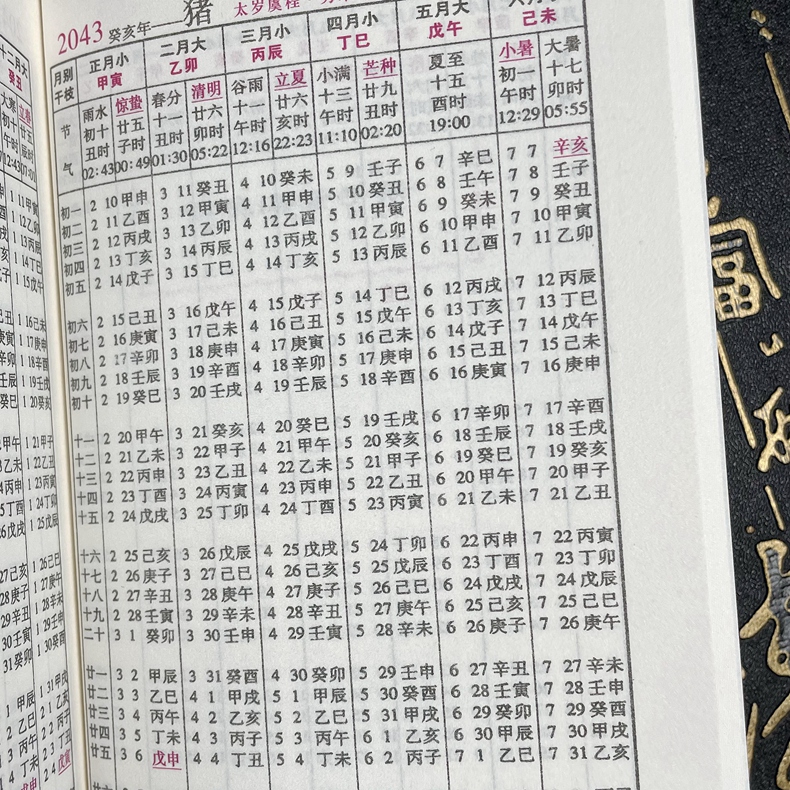 2043 癸亥年——猪 太岁虞程
月别 正月小 二月大 三月小 四月小 五月大 六月小
干枝 甲寅 乙卯 丙辰 丁巳 戊午 己未
节气 雨水 惊蛰 春分 清明 谷雨 立夏 小满 芒种 夏至 小暑 大暑
初十 廿五 十一 廿六 十一 廿六 十三 廿九 十五 初一 十七
丑时 子时 丑时 卯时 午时 亥时 午时 丑时 酉时 午时 卯时
02:43 00:49 01:30 05:22 12:16 22:23 11:10 02:20 19:00 12:29 05:55
初一 2 10 甲申 3 11 癸丑 4 10 癸未 5 9 壬子 6 7 辛巳 7 7 辛亥
初二 2 11 乙酉 3 12 甲寅 4 11 甲申 5 10 癸丑 6 8 壬午 7 8 壬子
初三 2 12 丙戌 3 13 乙卯 4 12 乙酉 5 11 甲寅 6 9 癸未 7 9 癸丑
初四 2 13 丁亥 3 14 丙辰 4 13 丙戌 5 12 乙卯 6 10 甲申 7 10 甲寅
初五 2 14 戊子 3 15 丁巳 4 14 丁亥 5 13 丙辰 6 11 乙酉 7 11 乙卯
初六 2 15 己丑 3 16 戊午 4 15 戊子 5 14 丁巳 6 12 丙戌 7 12 丙辰
初七 2 16 庚寅 3 17 己未 4 16 己丑 5 15 戊午 6 13 丁亥 7 13 丁巳
初八 2 17 辛卯 3 18 庚申 4 17 庚寅 5 16 己未 6 14 戊子 7 14 戊午
初九 2 18 壬辰 3 19 辛酉 4 18 辛卯 5 17 庚申 6 15 己丑 7 15 己未
初十 2 19 癸巳 3 20 壬戌 4 19 壬辰 5 18 辛酉 6 16 庚寅 7 16 庚申
十一 2 20 甲午 3 21 癸亥 4 20 癸巳 5 19 壬戌 6 17 辛卯 7 17 辛酉
十二 2 21 乙未 3 22 甲子 4 21 甲午 5 20 癸亥 6 18 壬辰 7 18 壬戌
十三 2 22 丙申 3 23 乙丑 4 22 乙未 5 21 甲子 6 19 癸巳 7 19 癸亥
十四 2 23 丁酉 3 24 丙寅 4 23 丙申 5 22 乙丑 6 20 甲午 7 20 甲子
十五 2 24 戊戌 3 25 丁卯 4 24 丁酉 5 23 丙寅 6 21 乙未 7 21 乙丑
十六 2 25 己亥 3 26 戊辰 4 25 戊戌 5 24 丁卯 6 22 丙申 7 22 丙寅
十七 2 26 庚子 3 27 己巳 4 26 己亥 5 25 戊辰 6 23 丁酉 7 23 丁卯
十八 2 27 辛丑 3 28 庚午 4 27 庚子 5 26 己巳 6 24 戊戌 7 24 戊辰
十九 2 28 壬寅 3 29 辛未 4 28 辛丑 5 27 庚午 6 25 己亥 7 25 己巳
二十 3 1 癸卯 3 30 壬申 4 29 壬寅 5 28 辛未 6 26 庚子 7 26 庚午
廿一 3 2 甲辰 3 31 癸酉 4 30 癸卯 5 29 壬申 6 27 辛丑 7 27 辛未
廿二 3 3 乙巳 4 1 甲戌 5 1 甲辰 5 30 癸酉 6 28 壬寅 7 28 壬申
廿三 3 4 丙午 4 2 乙亥 5 2 乙巳 5 31 甲戌 6 29 癸卯 7 29 癸酉
廿四 3 5 丁未 4 3 丙子 5 3 丙午 6 1 乙亥 6 30 甲辰 7 30 甲戌
廿五 3 6 戊申 4 4 丁丑 5 4 丁未 6 2 丙子 7 1 乙巳 7 31 乙亥